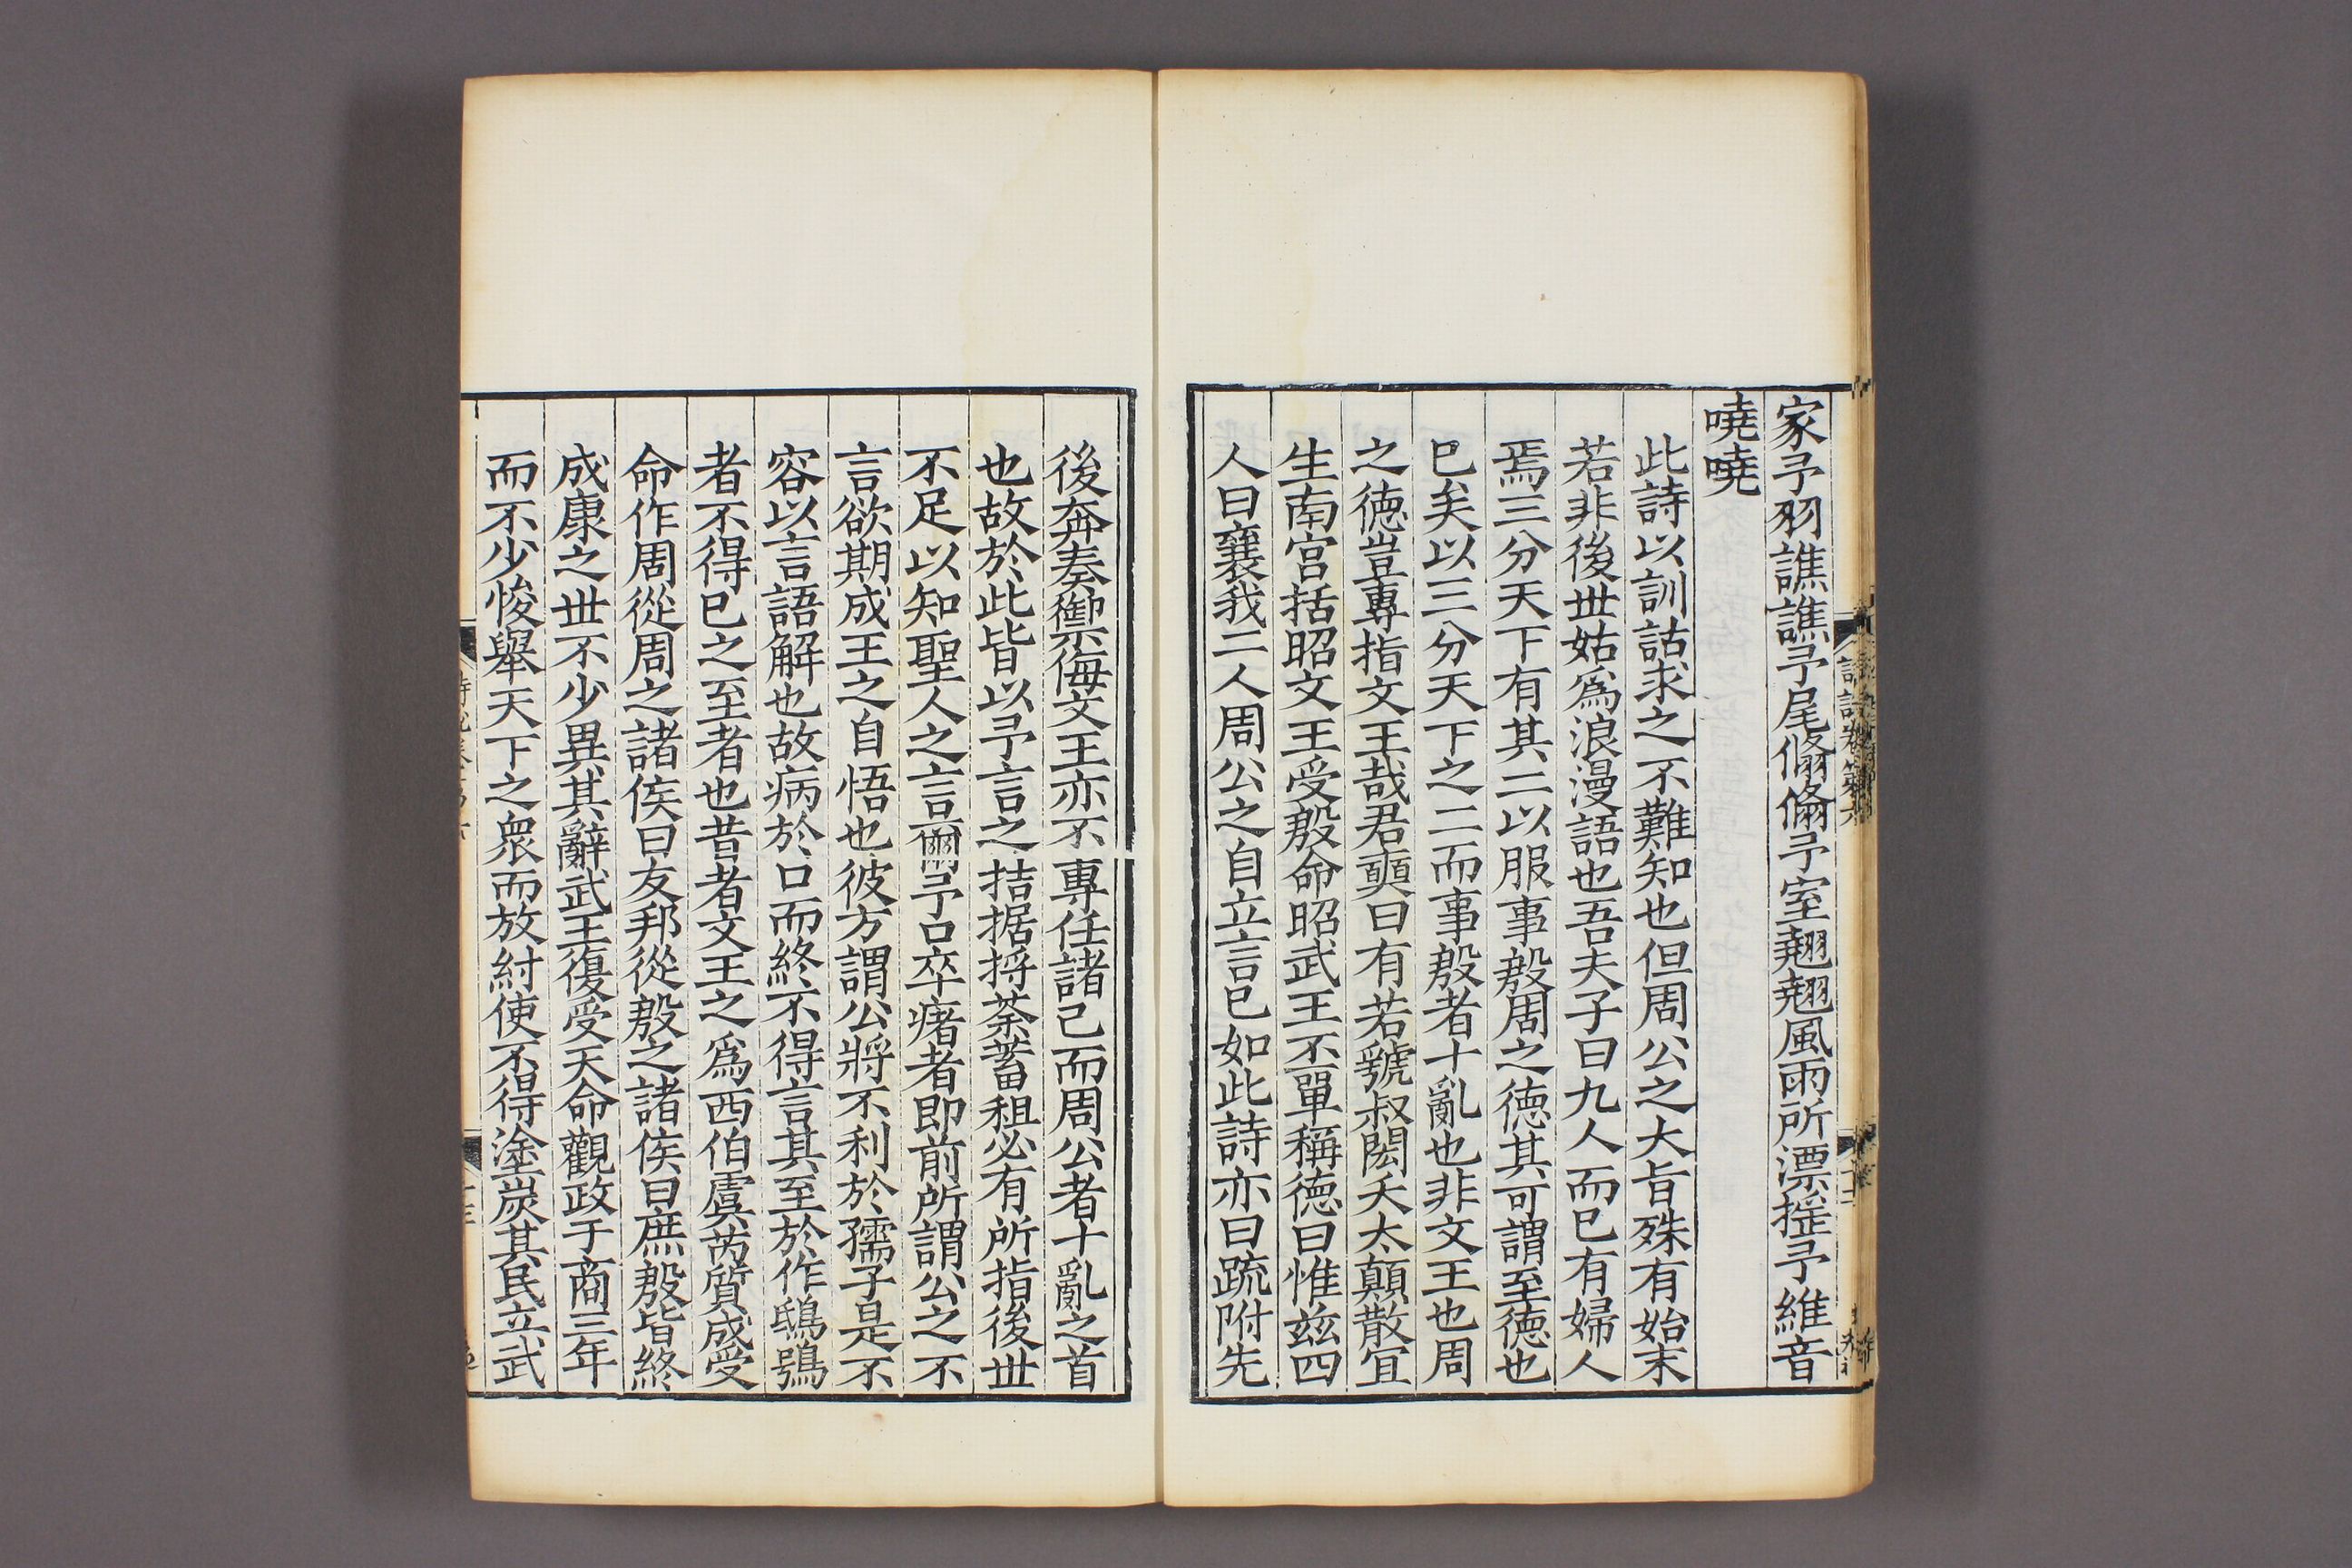 家予羽譙譙予尾翛翛予室翹翹風雨所漂揺予維音
嘵嘵
此詩以訓詁求之不難知也但周公之大旨殊有始末
若非後世姑爲浪漫語也吾夫子曰九人而已有婦人
焉三分天下有其二以服事殷周之德其可謂至德也
已矣以三分天下之二而事殷者十亂也非文王也周
之德豈專指文王哉君奭曰有若虢叔閎夭太顛散宜
生南宮括昭文王受殷命昭武王不單稱德曰惟茲四
人曰襄我二人周公之自立言已如此詩亦曰疏附先
後奔奏禦侮文王亦不專任諸己而周公者十亂之首
也故於此皆以予言之拮据捋荼蓄租必有所指後世
不足以知聖人之言爾予口卒瘏者即前所謂公之不
言欲期成王之自悟也彼方謂公將不利於孺子是不
容以言語解也故病於口而終不得言其至於作鴟鴞
者不得已之至者也昔者文王之爲西伯虞芮質成受
命作周從周之諸侯曰友邦從殷之諸侯曰庶殷皆終
成康之世不少異其辭武王復受天命觀政于商三年
而不少悛舉天下之衆而放紂使不得塗炭其民立武